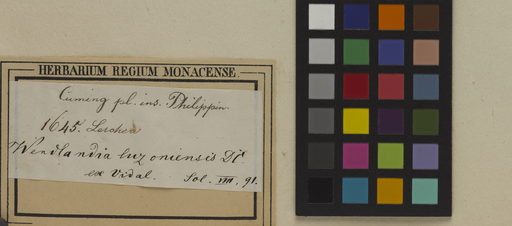 HERBARIUM REGIUM MONACENSE.
Cuming pl. ins. Philippin.
1645. Lerchea
Wendlandia luzoniensis DC.
ex Vidal. Sol. VIII. 91.